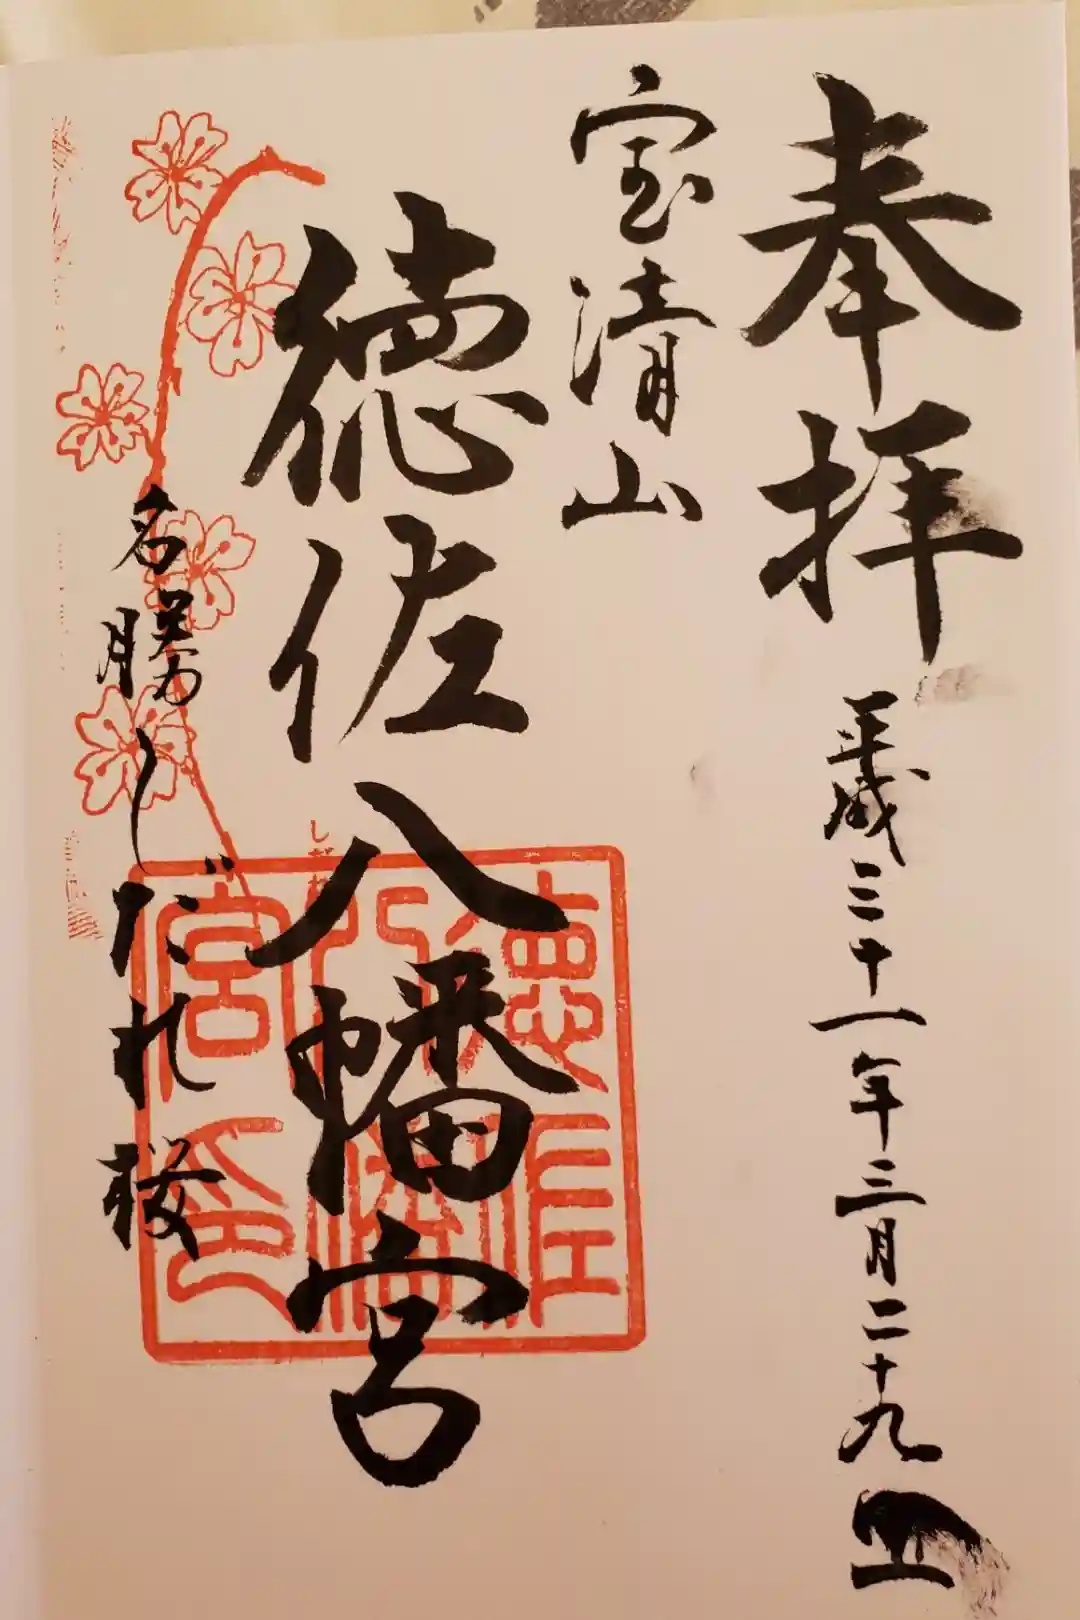 奉拝
平成三十一年三月二十九日
宝清山
徳佐八幡宮
徳佐八幡宮印
名勝しだれ桜